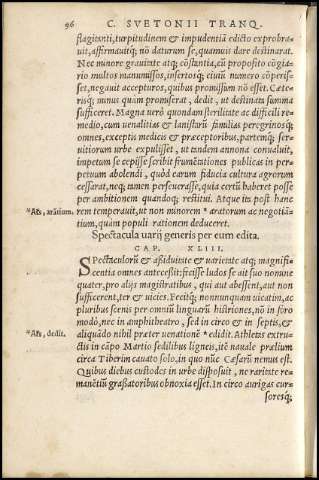 96 C. SVETONII TRANQ.
flagitanti, turpitudinem & impudentiā edicto exprobra=
uit, affirmauitq; nō daturum se, quamuis dare destinarat.
Nec minore grauitate atq; cōstantia, cū proposito cōgia=
rio multos manumissos, insertosq́; ciuiū numero cōperis=
set, negauit accepturos, quibus promissum nō esset. Cæte=
risq́; minus quàm promiserat, dedit, ut destinata summa
sufficeret. Magna uerò quondam sterilitate ac difficili re=
medio, cum uenalitias & lanistarū familias peregrinosq́;
omnes, exceptis medicis & præceptoribus, partemq́; ser=
uitiorum urbe expulisset, ut tandem annona conualuit,
impetum se cepisse scribit frumētationes publicas in per=
petuum abolendi, quòd earum fiducia cultura agrorum
cessaret, neq; tamen perseuerasse, quia certū haberet posse
per ambitionem quandoq; restitui. Atque ita post hanc
rem temperauit, ut non minorem * aratorum ac negotiā=
tium, quàm populi rationem deduceret.
*Alʼs, arātium.
Spectacula uarij generis per eum edita.
CAP. XLIII.
SPectaculorū & aßiduitate & uarietate atq; magnifi=
centia omnes antecessit: fecisse ludos se ait suo nomine
quater, pro alijs magistratibus, qui aut abessent, aut non
sufficerent, ter & uicies. Fecitq́; nonnunquam uicatim, ac
pluribus scenis per omniū linguarū histriones, nō in foro
modò, nec in amphitheatro, sed in circo & in septis, &
aliquādo nihil præter uenationē * edidit. Athletas extru=
ctis in cāpo Martio sedilibus ligneis, itē nauale prælium
circa Tiberim cauato solo, in quo nūc Cæsarū nemus est.
*Alʼs, dedit.
Quibus diebus custodes in urbe disposuit, ne raritate re=
manētiū graßatoribus obnoxia esset. In circo aurigas cur=
soresq́;